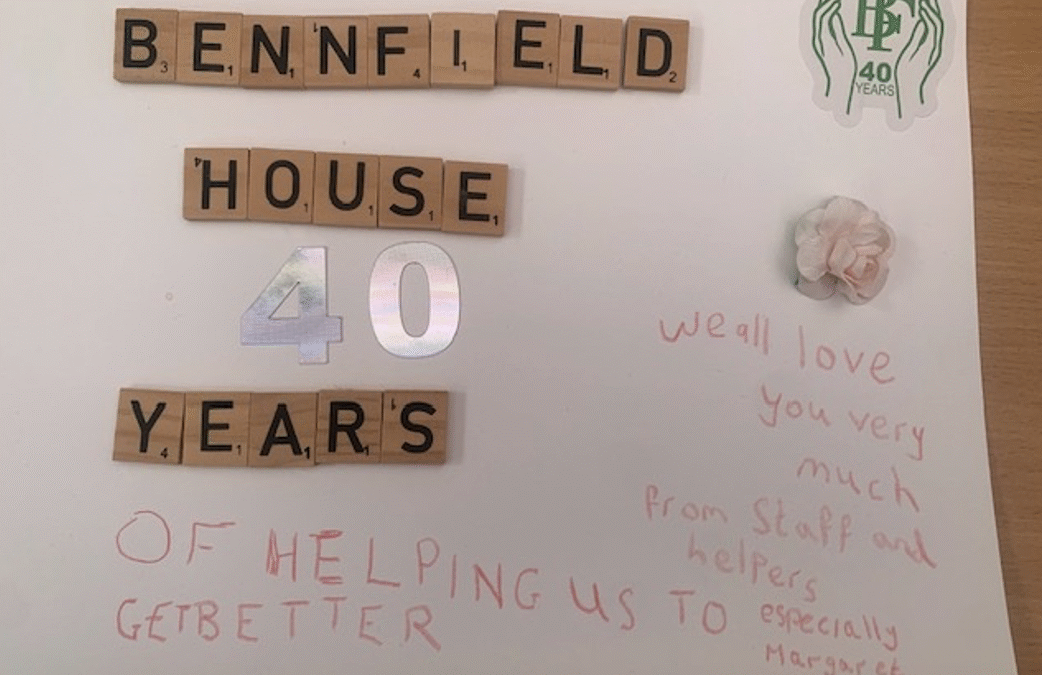 BENNFIELD
HOUSE
40
YEARS
OF HELPING US TO
GETBETTER
BF
40
YEARS
we all love
you very
much
from Staff and
helpers
especially
Margaret